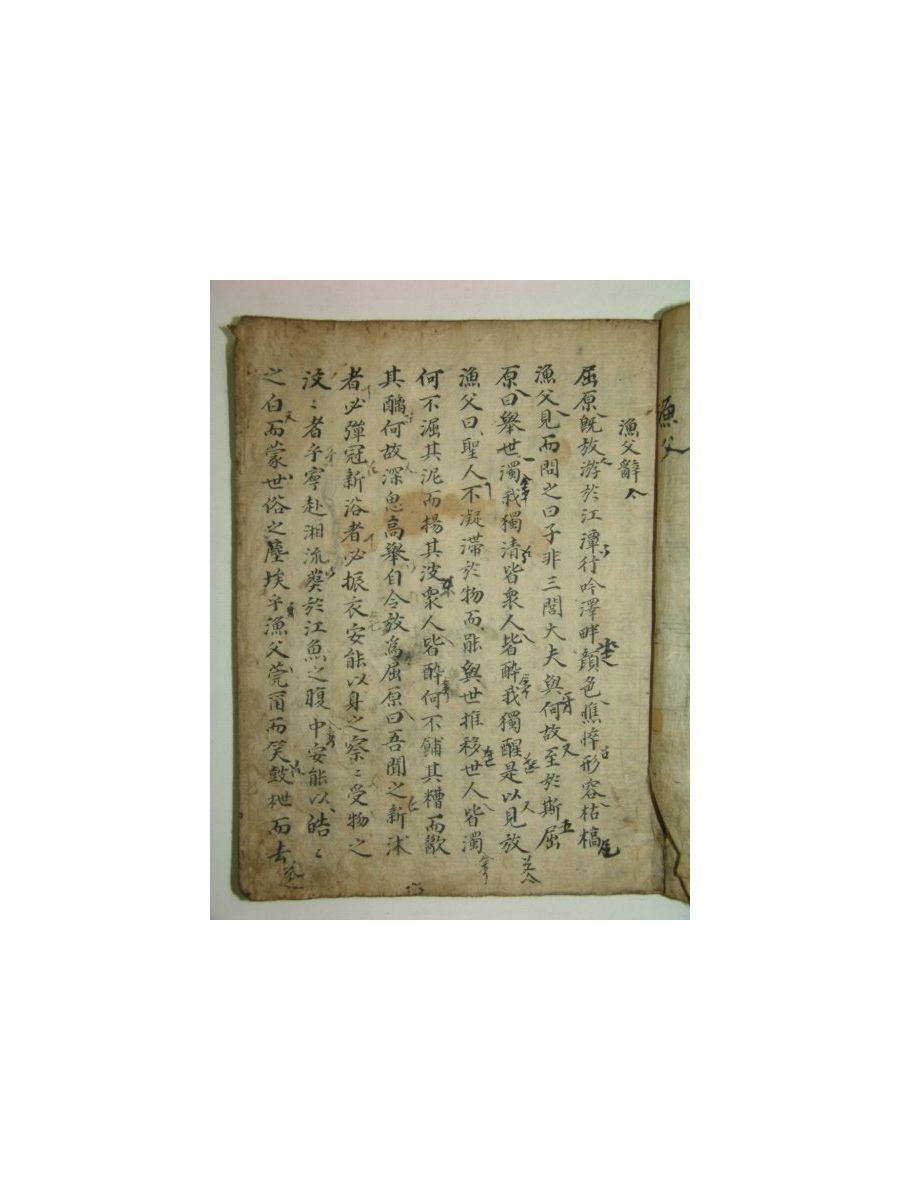 漁父
漁父辭
屈原旣放游於江潭行吟澤畔顔色憔悴形容枯槁
漁父見而問之曰子非三閭大夫與何故至於斯屈
原曰舉世濁我獨清皆衆人皆醉我獨醒是以見放
漁父曰聖人不凝滯於物而能與世推移世人皆濁
何不淈其泥而揚其波衆人皆醉何不餔其糟而歠
其醨何故深思高舉自令放爲屈原曰吾聞之新沐
者必彈冠新浴者必振衣安能以身之察〻受物之
汶〻者乎寧赴湘流葬於江魚之腹中安能以皓〻
之白而蒙世俗之塵埃乎漁父莞甭而笑鼓枻而去